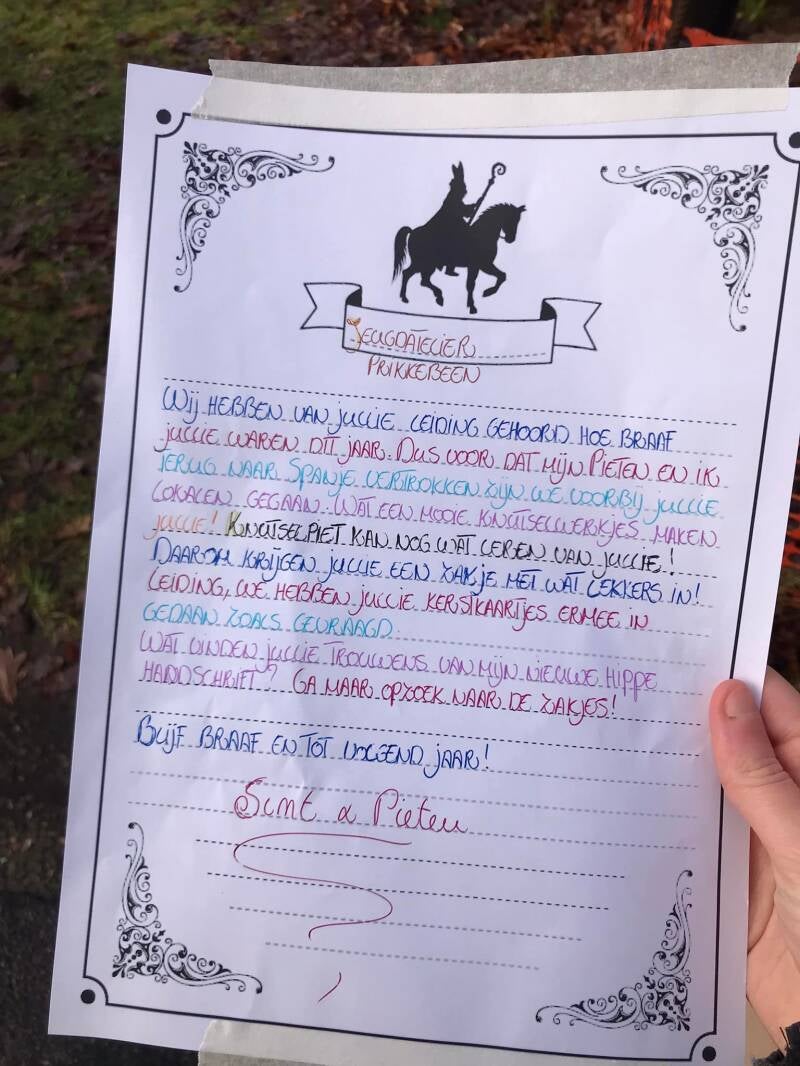 JEUGDATELIER
PRIKKEBEEN
Wij HEBBEN VAN jullie LEIDING GEHOORD HOE BRAAF
jullie WAREN DIT jAAR. DUS VOOR DAT MijN PIETEN EN IK
TERUG NAAR SPANjE VERTROKKEN ZijN WE VOORBij jullie
LOKALEN GEGAAN. WAT EEN MOOIE KNUTSELWERKjES MAKEN
jullie! KNUTSELPIET KAN NOG WAT LEREN VAN jullie!
DAAROM KRijGEN jullie EEN ZAKjE MET WAT LEKKERS IN!
LEIDING, WE HEBBEN jullie KERSTKAARTjES ERMEE IN
GEDAAN ZOALS GEVRAAGD.
WAT VINDEN jullie TROUWENS VAN MijN NIEUWE HIPPE
HANDSCHRIFT? GA MAAR OPZOEK NAAR DE ZAKjES!
BlijF BRAAF EN TOT VOLGEND jAAR!
Sint & Pieten